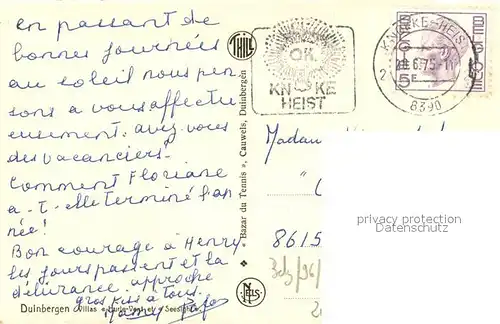 en passant de
bonnes journées
au soleil nous pen
sons a vous affectu
eusement. avez-vous
des vacanciers.
Comment Floriane
a-t-elle terminé l'an
née!
Bon courage à Henry
les jours passent et la
délivrance approche
gros kiss à tous.
Duinbergen Villas
THILL
Bazar du Tennis », Cauwels, Duinbergen
NELS
OK.
KNOKKE
HEIST
KNOKKE-HEIST
8390
5F
Madam
8615
privacy protection
Datenschutz